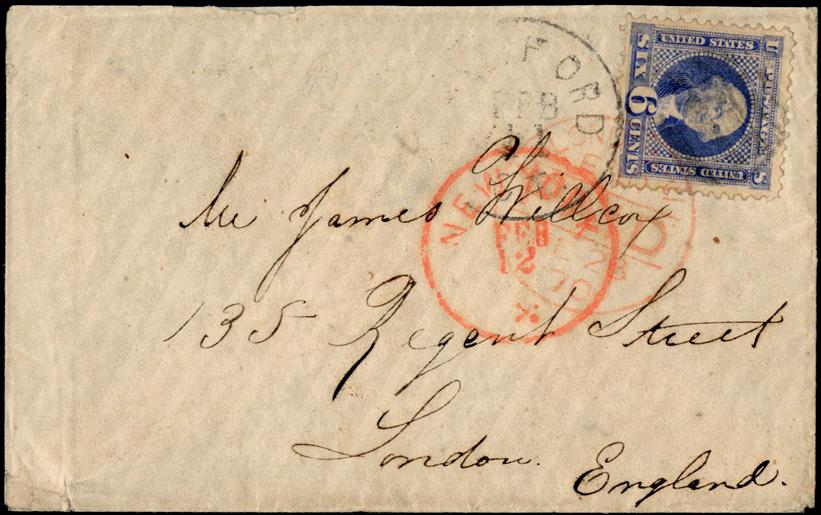 FORD
FEB
U S POSTAGE
UNITED STATES
SIX 6 CENTS
UNITED STATES
NEW YORK
FEB
12
PAID
Mr James Willcox
135 Regent Street
London.
England.